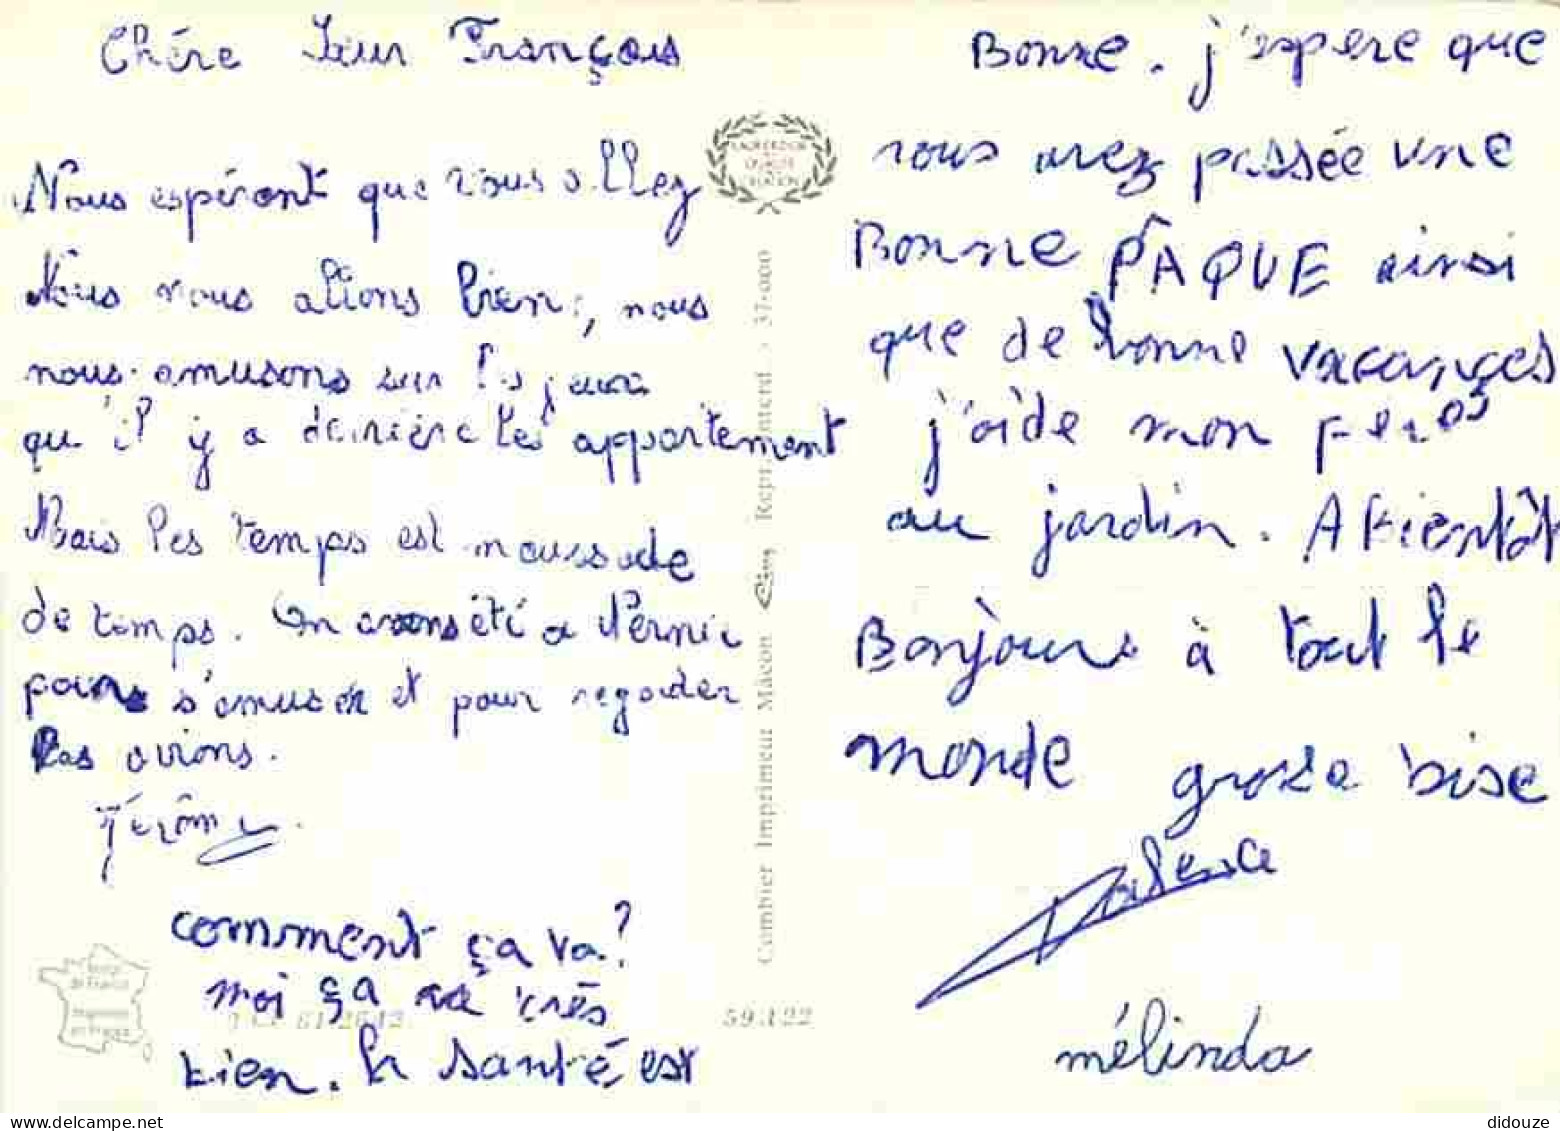 Chére Sœur François
Nous espéront que vous allez
Nous nous allons bien, nous
nous amusons sur les jeux
qu'il y a derrière les appartement
Mais les temps est maussade
de temps. On avons été a
pour s'amuser et pour regarder
les avions.
Jérôme.
comment ça va?
moi ça va très
bien. la santé est
Bonne. j'espere que
vous avez passée une
Bonne PÂQUE ainsi
que de bonne vacances
j'aide mon
au jardin. A Bientôt
Bonjour à tout le
monde grosse bise
mélinda
Combier Imprimeur Mâcon Cim
37.000
59.122